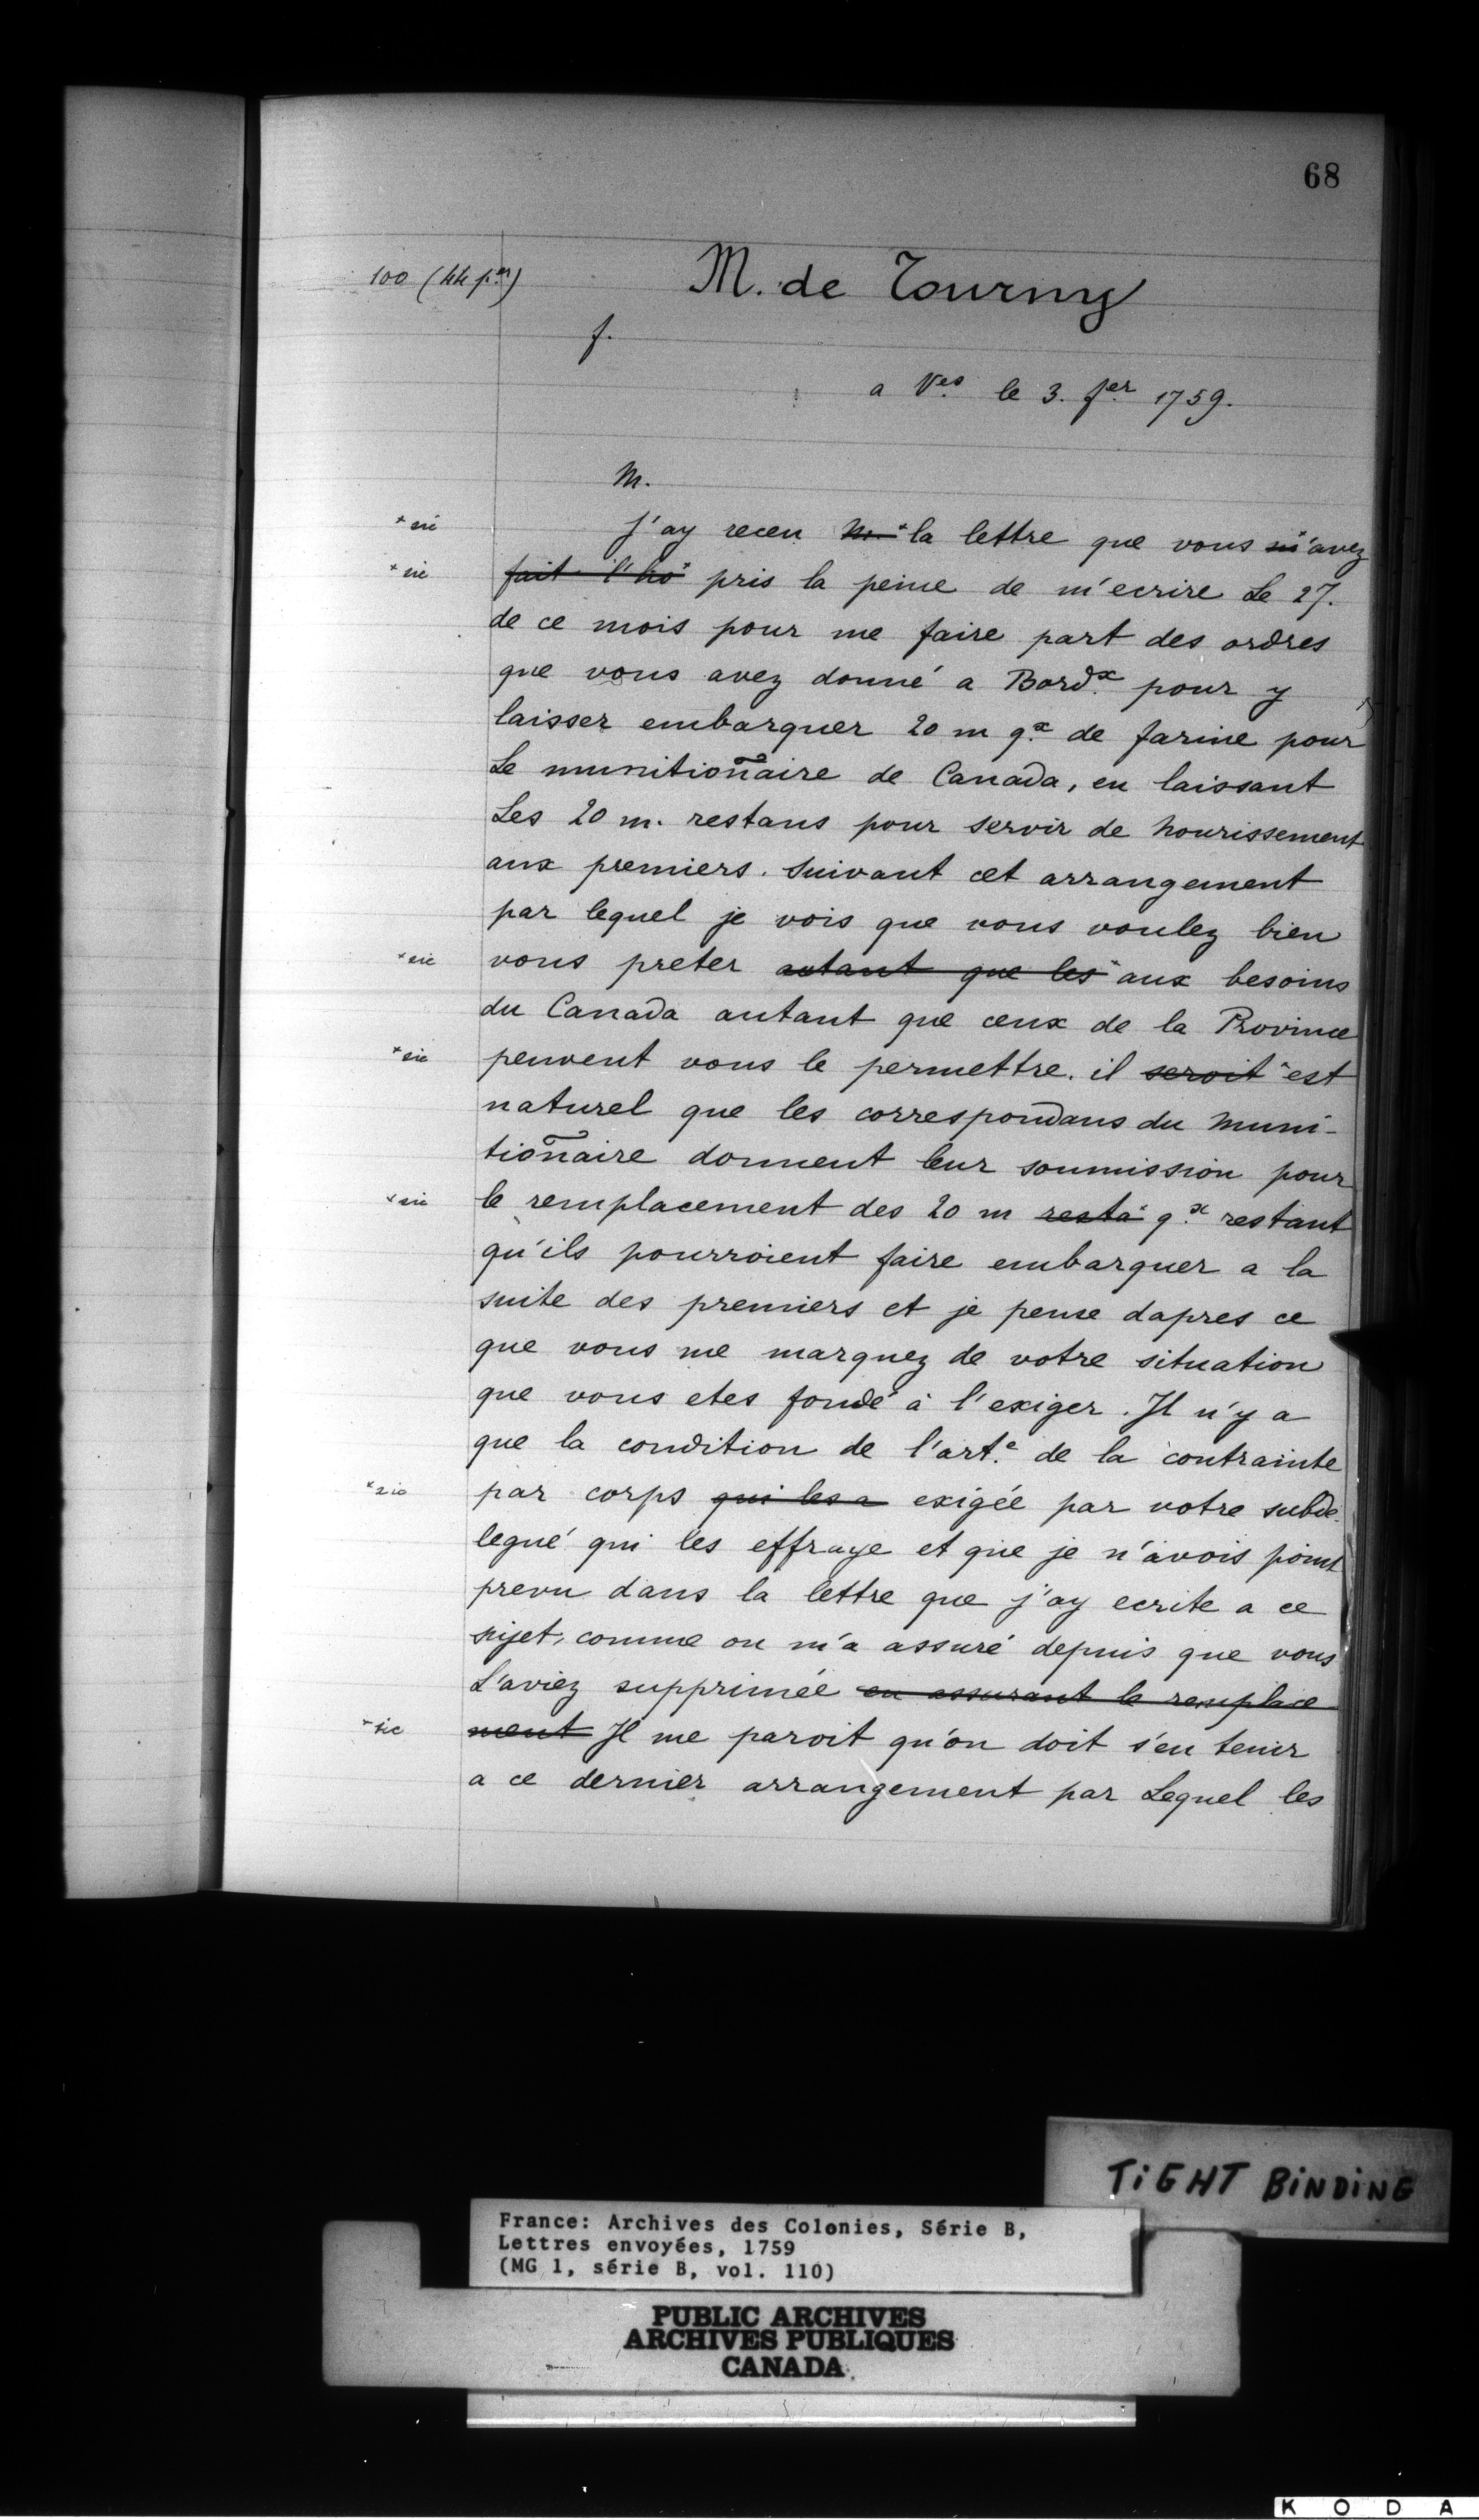 68
100 (44 p.on)
M. de Tourny
f.
a V.es le 3. f.er 1759.
M.
+ sic
J'ay receu M. + la lettre que vous m' + avez
+ sic
fait l'ho + pris la peine de m'ecrire Le 27.
de ce mois pour me faire part des ordres
que vous avez donné a Bord.x pour y
laisser embarquer 20 m q.x de farine pour
Le munitionaire de Canada, en laissant
Les 20 m. restans pour servir de nourissement
aux premiers. Suivant cet arrangement
par lequel je vois que vous voulez bien
+ sic
vous preter autant que les + aux besoins
du Canada autant que ceux de la Province
+ sic
peuvent vous le permettre. il seroit + est
naturel que les correspondans du Muni-
tionaire donnent leur soumission pour
+ sic
le remplacement des 20 m resta + q.x restant
qu'ils pourroient faire embarquer a la
suite des premiers et je pense dapres ce
que vous me marquez de votre situation
que vous etes fondé à l'exiger. Il n'y a
que la condition de l'art.e de la contrainte
+ sic
par corps qui les a exigée par votre subde-
legué qui les effraye et que je n'avois point
prevu dans la lettre que j'ay ecrite a ce
sujet, comme on m'a assuré depuis que vous
L'aviez supprimée en assurant le remplace
+ sic
ment Il me paroit qu'on doit s'en tenir
a ce dernier arrangement par Lequel les
TiGHT BiNDiNG
France: Archives des Colonies, Série B,
Lettres envoyées, 1759
(MG 1, série B, vol. 110)
PUBLIC ARCHIVES
ARCHIVES PUBLIQUES
CANADA
K O D A